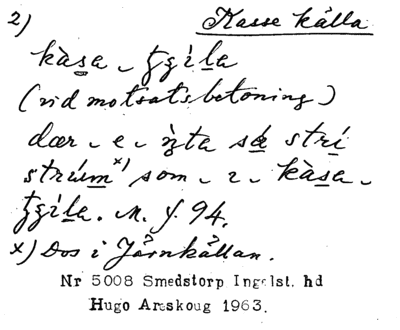 2) Kasse källa
kàsa - ʒɀíla
(vid motsatsbetoning)
dær - e - ìṇta sá strí
strúm x) som - ı - kàsa -
ʒɀíla. M. f. 94.
x) Dvs i Järnkällan.
Nr 5008 Smedstorp Ingelst. hd
Hugo Areskoug 1963.